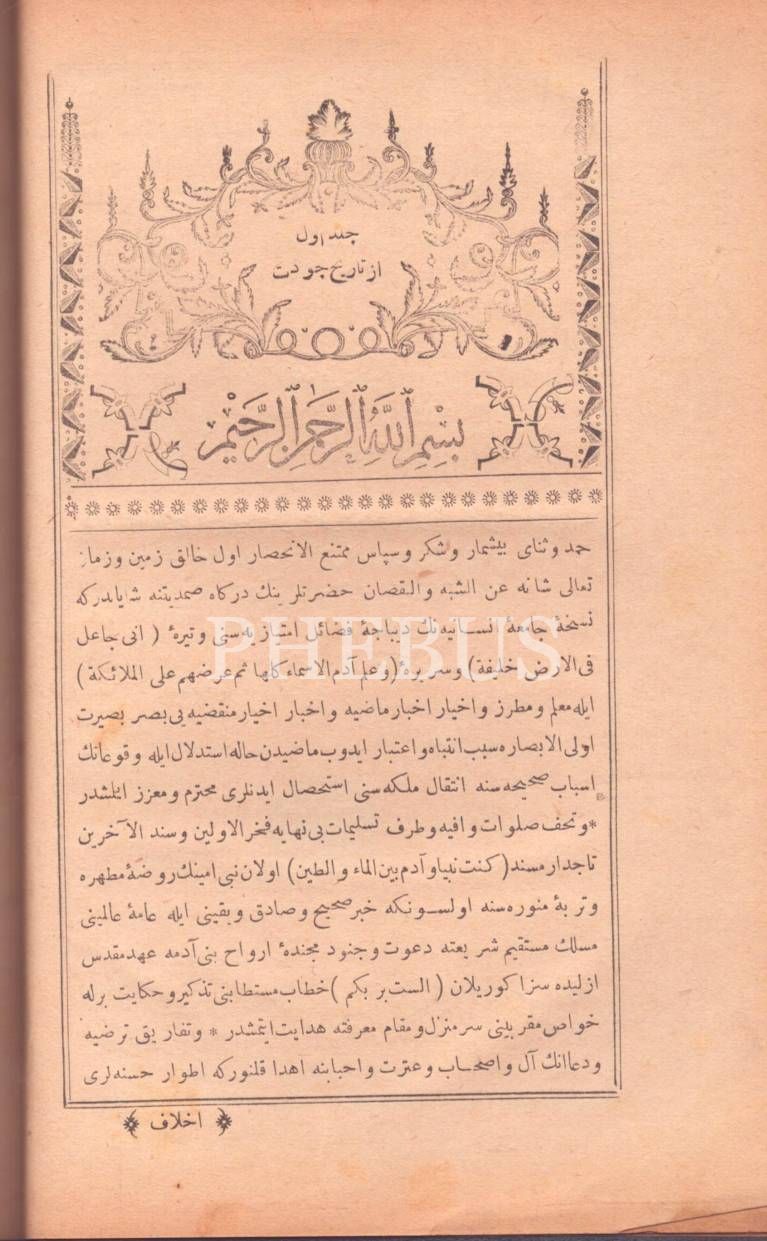 جلد اول
از تاریخ جودت
بسم الله الرحمن الرحیم
حمد و ثنای بیشمار و شکر و سپاس ممتنع الانحصار اول خالق زمین و زمان
تعالی شانه عن الشبه والنقصان حضرتلرینك درکاه صمدیتنه شایاندرکه
نسخۀ جامعۀ انسانیه‌نك دیباجۀ فضائل امتیازیه‌سنی وتیرۀ (انی جاعل
فی الارض خلیفة) وسریرۀ (وعلم آدم الاسماء کلها ثم عرضهم علی الملائکة)
ایله معلم و مطرز و اخیار اخبار ماضیه و اخبار اخیار منقضیه‌یی بصر بصیرت
اولی الابصاره سبب انتباه و اعتبار ایدوب ماضیدن حاله استدلال ایله وقوعاتك
اسباب صحیحه‌سنه انتقال ملکه‌سنی استحصال ایدنلری محترم و معزز ائلشدر
* وتحف صلوات وافیه و طرف تسلیمات بی نهایه فخر الاولین وسند الآخرین
تاجدار مسند (کنت نبیا و آدم بین الماء والطین) اولان نبی امینك روضۀ مطهره
وتربۀ منوره‌سنه اولسونکه خبر صحیح وصادق ویقینی ایله عامۀ عالمینی
مسلك مستقیم شریعته دعوت وجنود مجندۀ ارواح بنی آدمه عهد مقدس
ازلیده سزا کوریلان (الست بربکم) خطاب مستطابنی تذکیر وحکایت برله
خواص مقربینی سر منزل و مقام معرفته هدایت ایتمشدر * وتفاریق ترضیه
ودعاانك آل واصحاب وعترت واحبابنه اهدا قلنورکه اطوار حسنه‌لری
اخلاف
PHEBUS